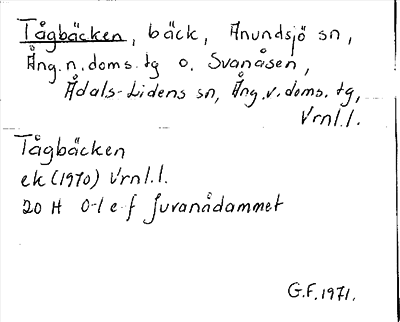 Tågbäcken, bäck, Anundsjö sn,
Ång.n.doms.tg o. Svanåsen,
Ådals-Lidens sn, Ång.v.doms.tg,
Vrnl.l.
Tågbäcken
ek (1970) Vrnl.l.
20 H 0-1 e-f Juvanådammet
G.F. 1971.